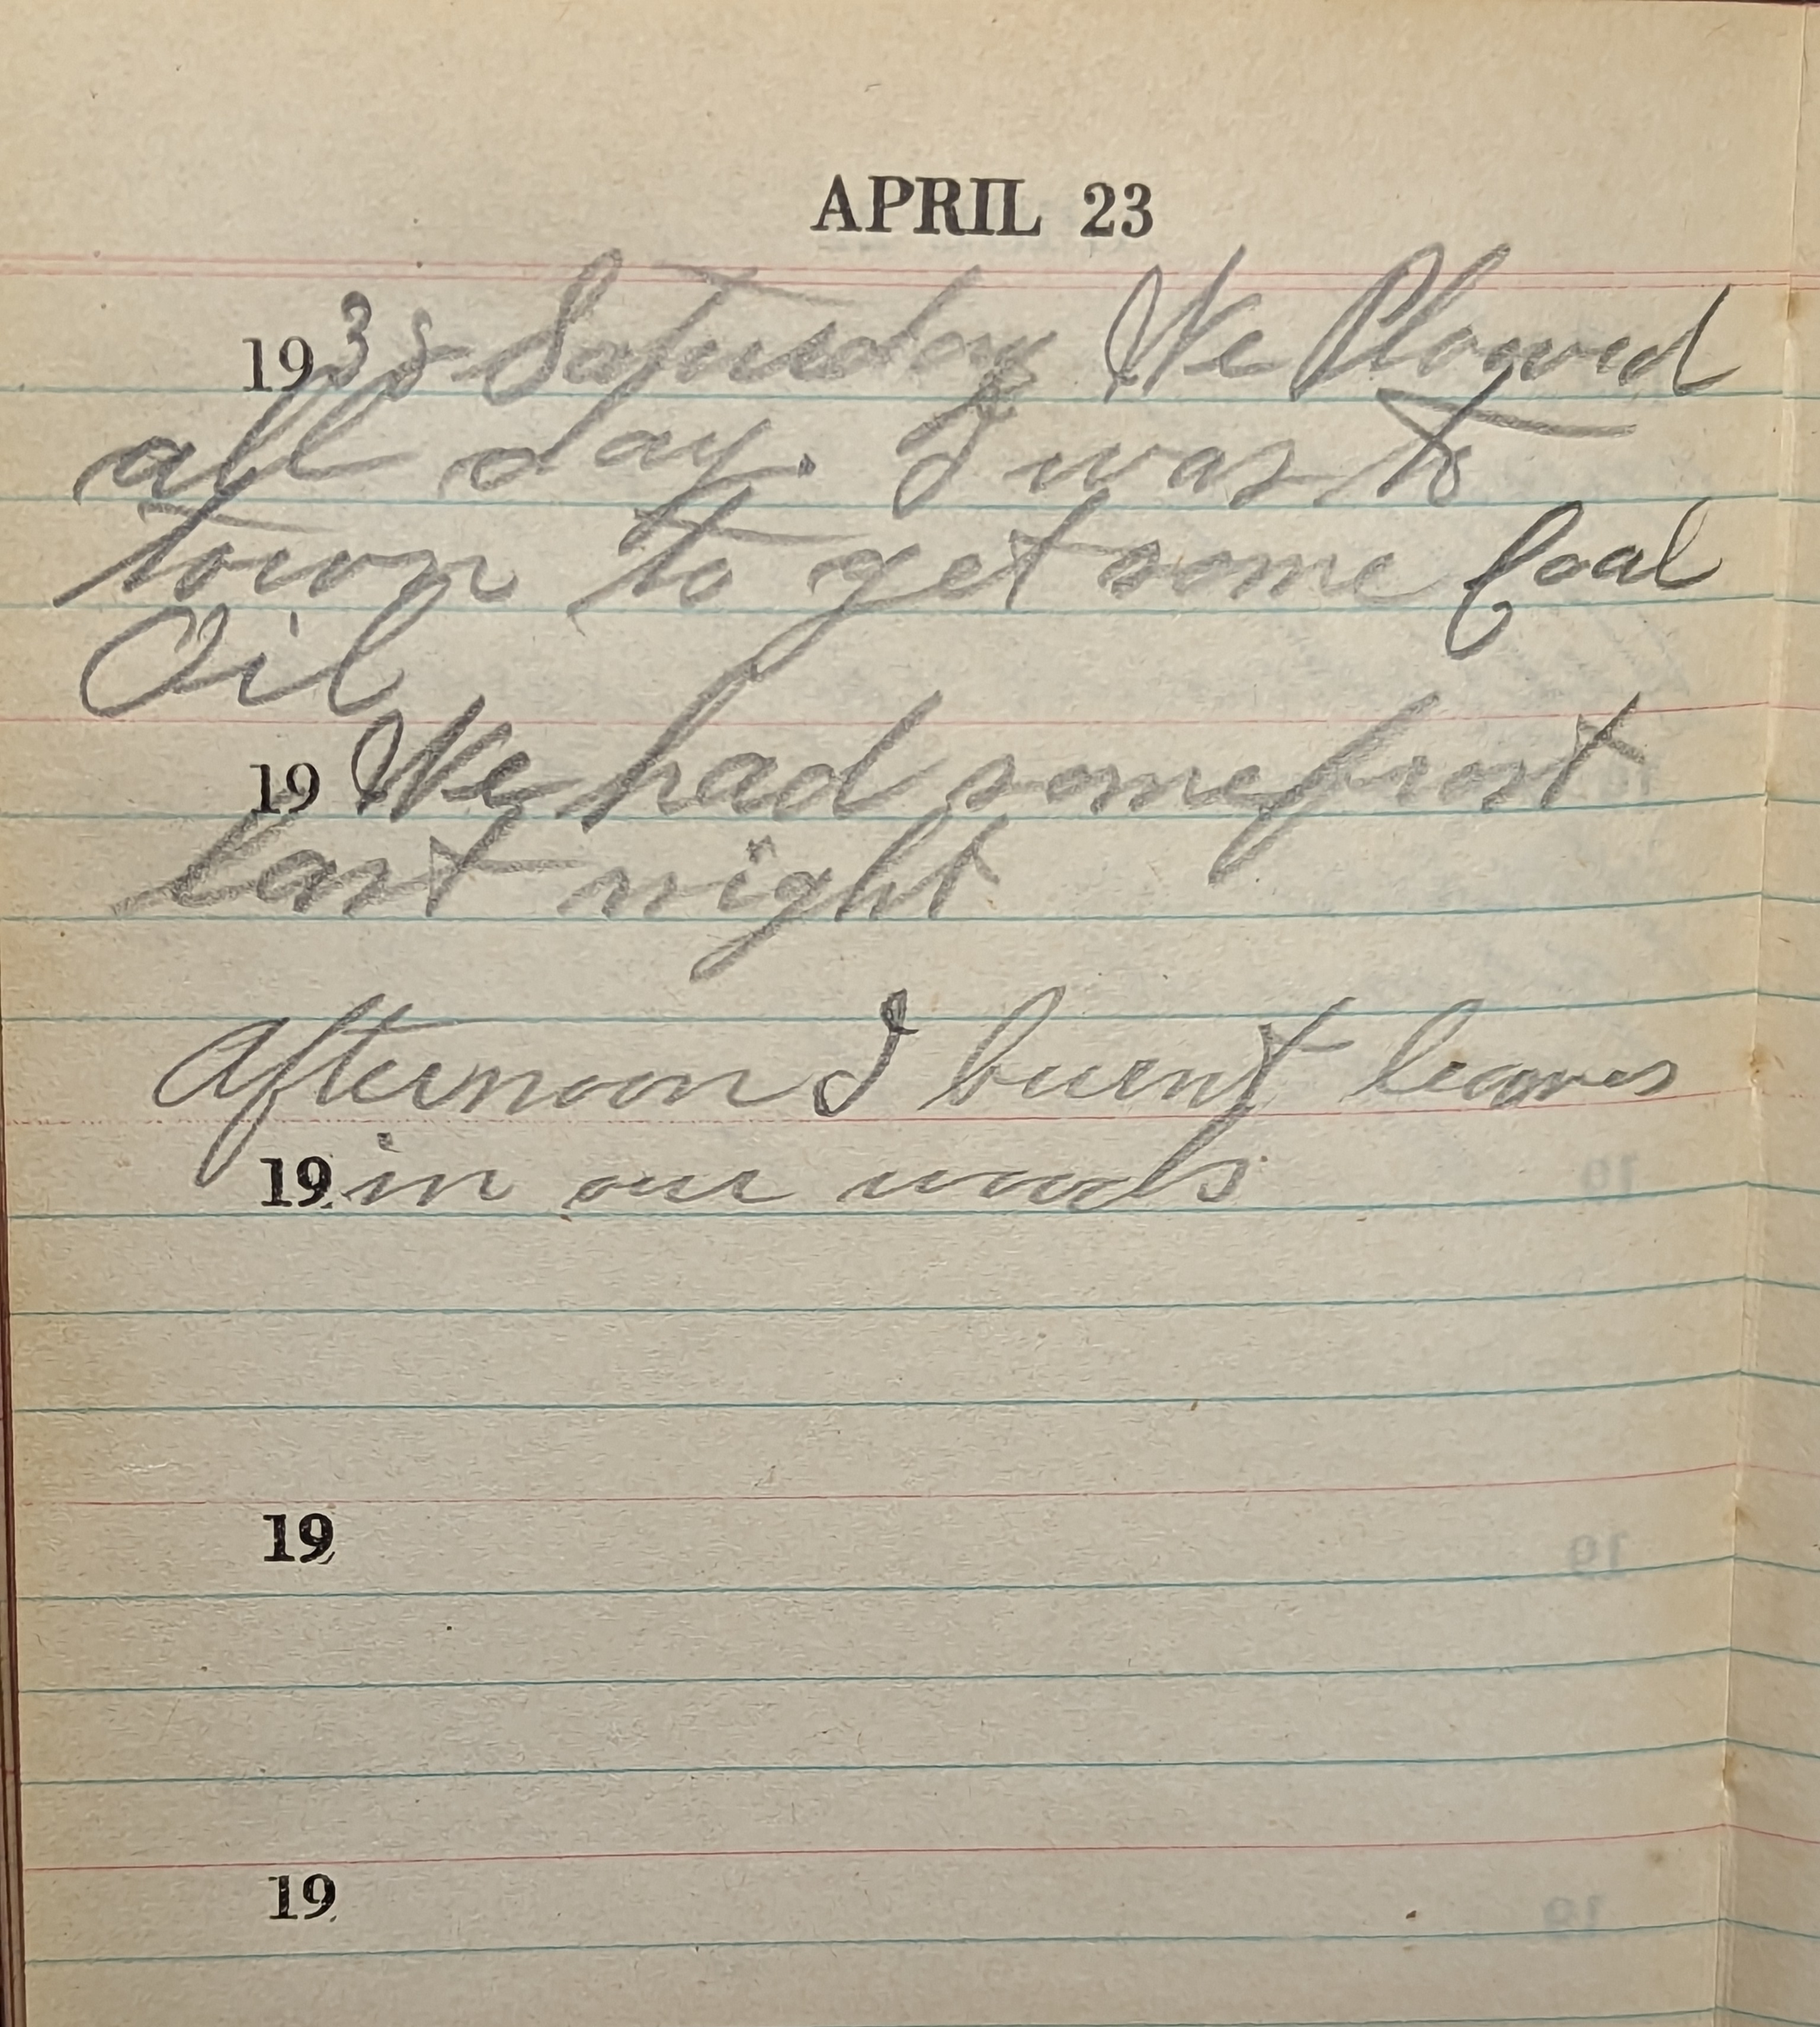 APRIL 23
1938 Saturday We Plowed
all day. I was to
town to get some Coal
Oil
19 We had some frost
last night
Afternoon I burnt leaves
19 in our woods
19
19